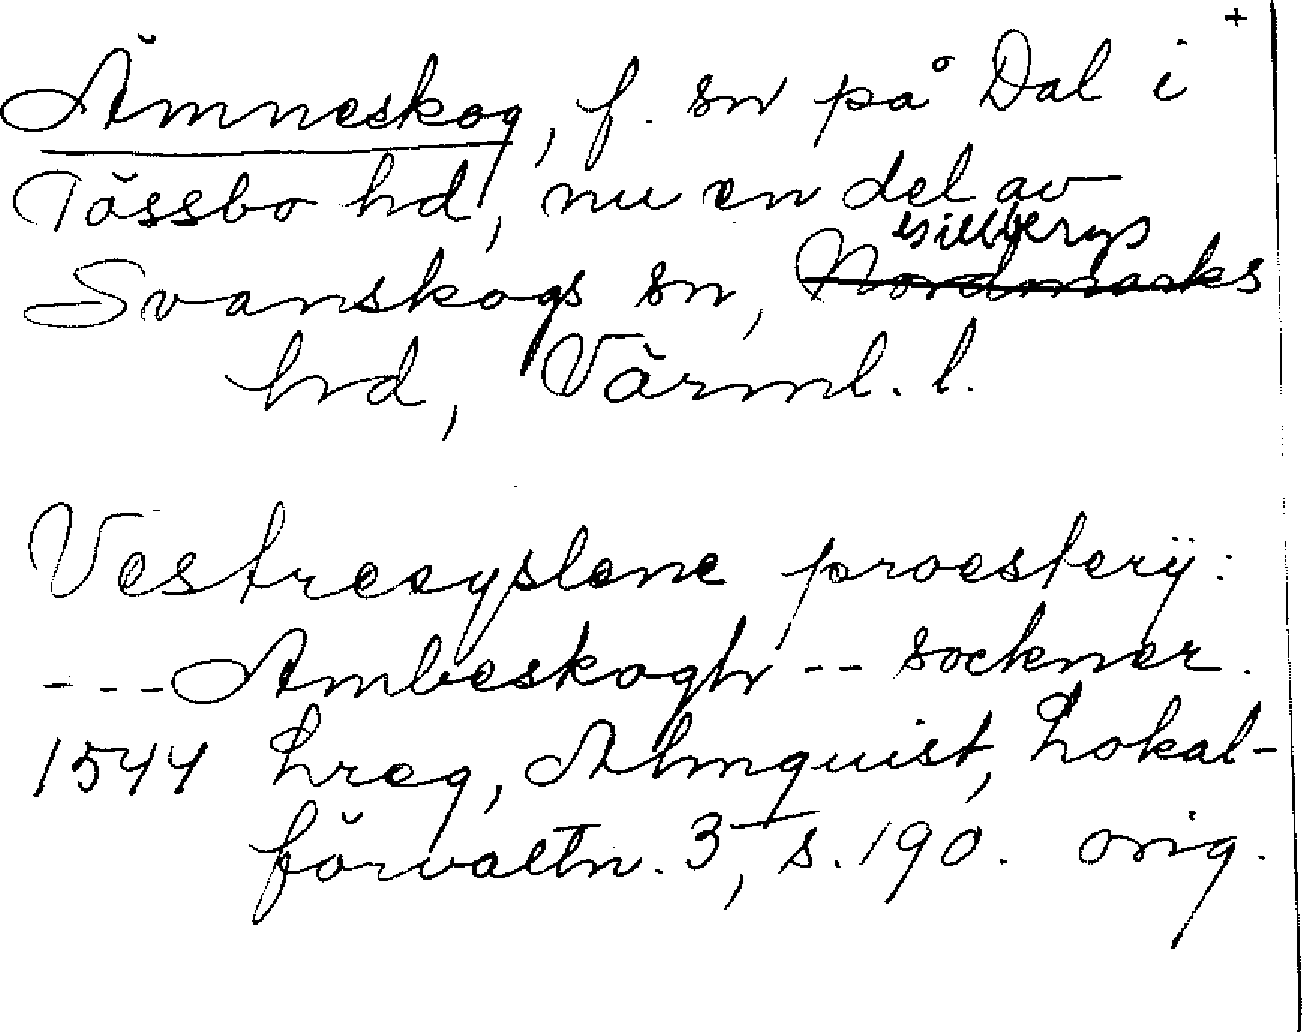 +
Ämneskog, f. sn på Dal i
Tössbo hd, nu en del av
Gillbergs
Svanskogs sn, Nordmarks
hd, Värml. l.
Vestresyslene proesterij:
---Ambeskogh -- sockner.
1544 hreg, Almquist, Lokal-
förvaltn. 3, s. 190. orig.